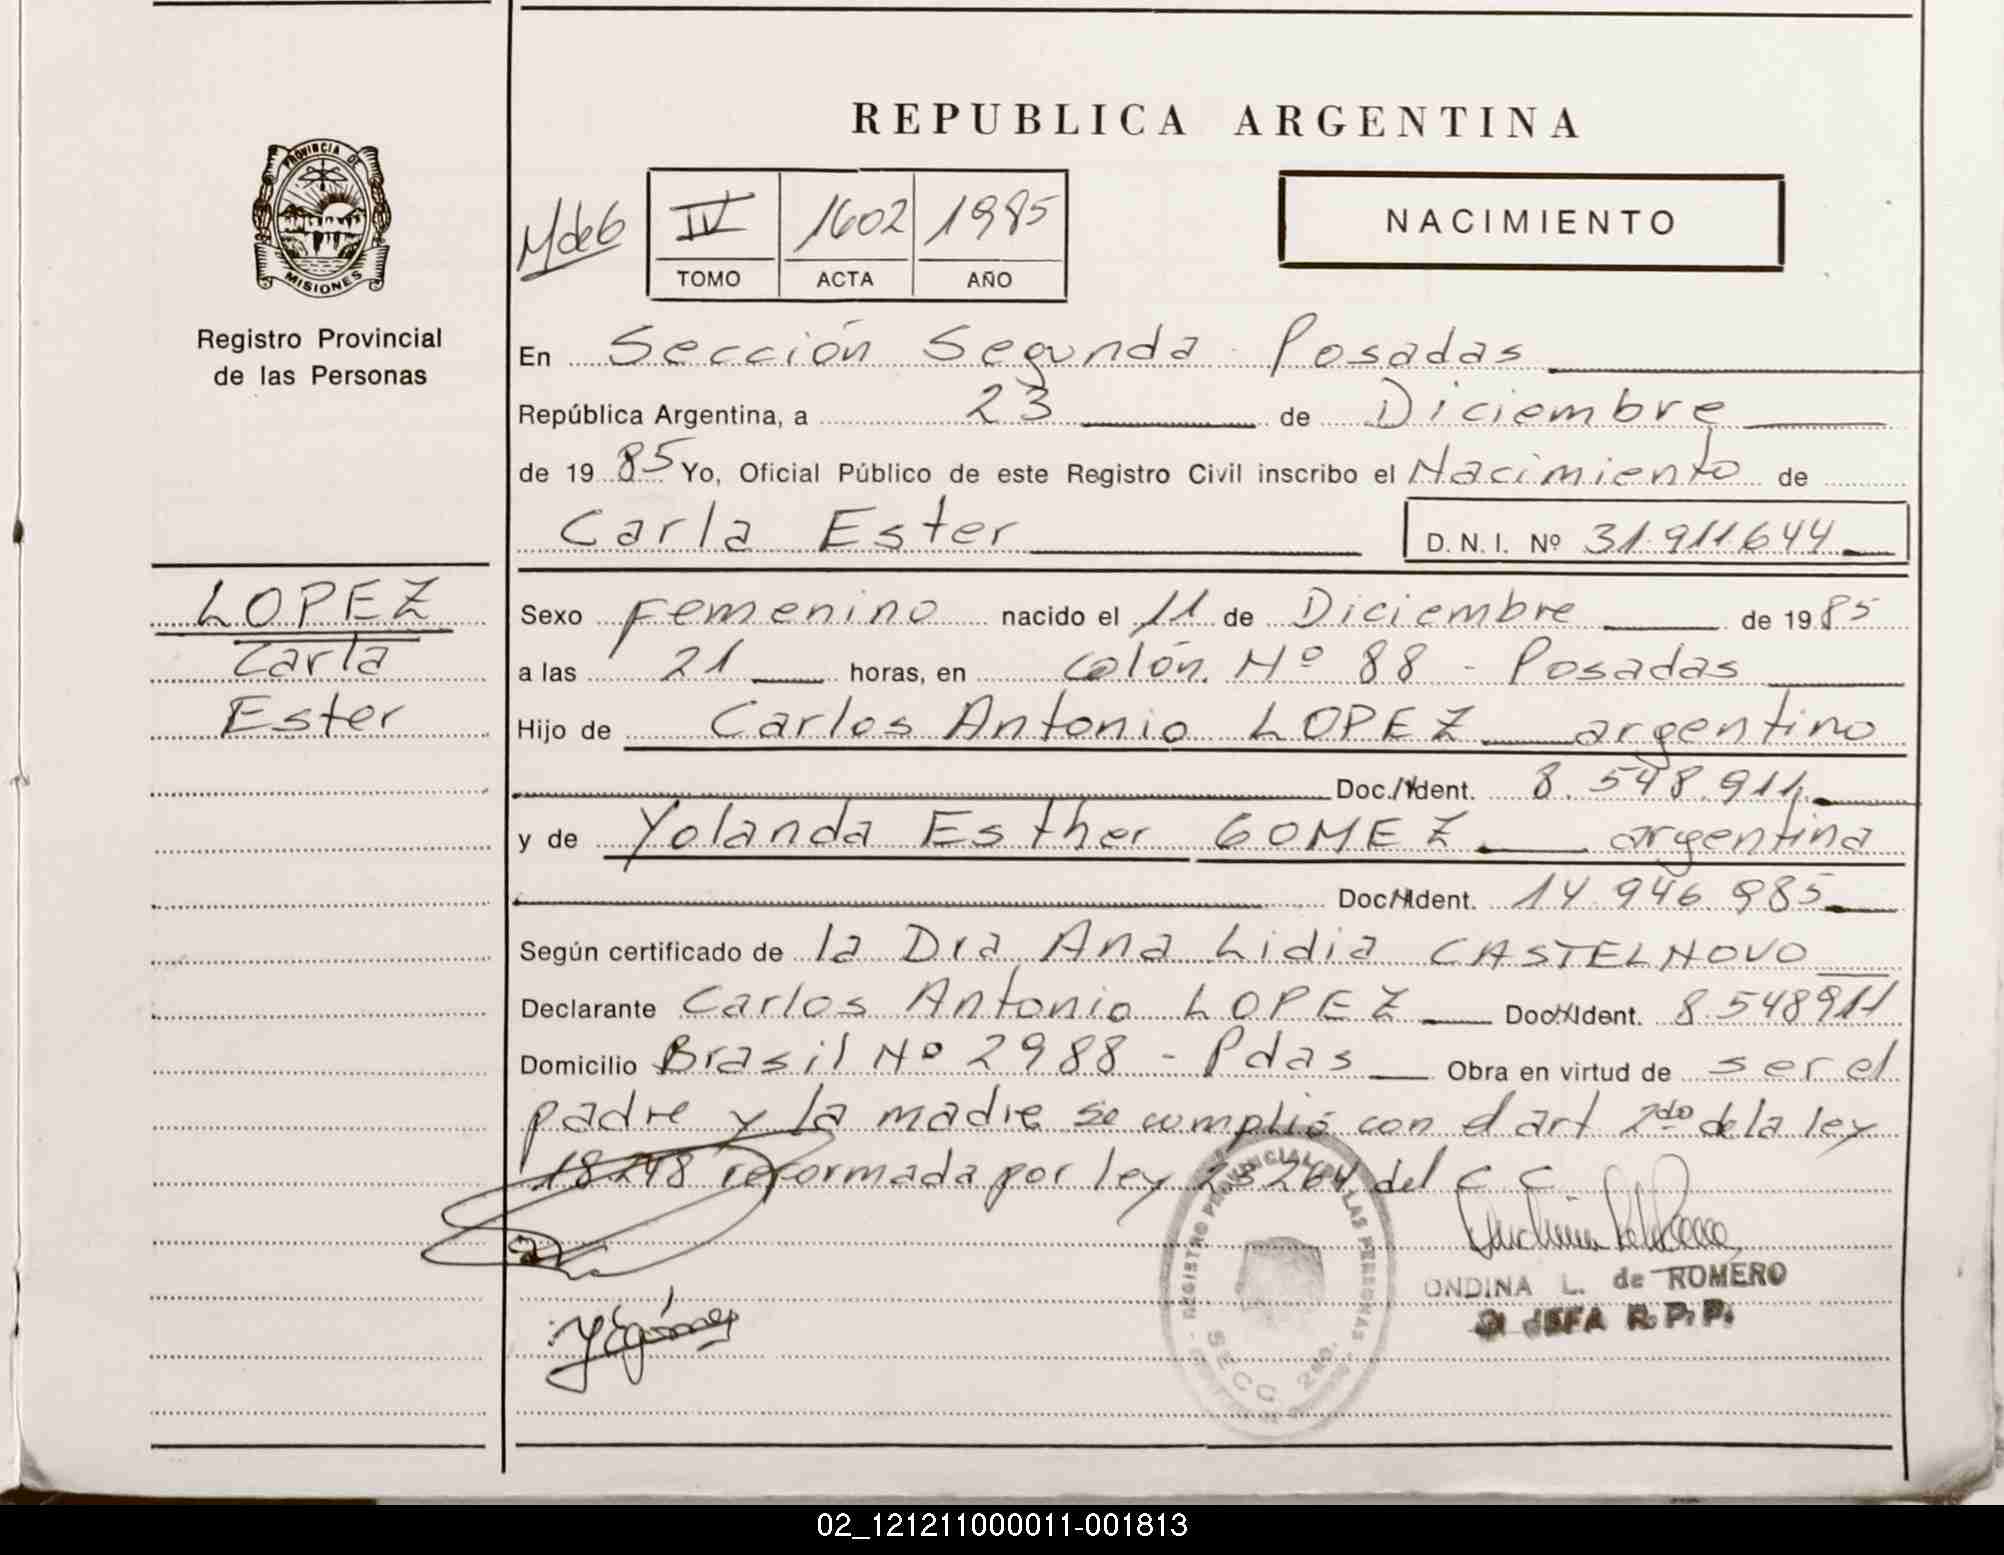 REPUBLICA ARGENTINA
PROVINCIA DE
MISIONES
Registro Provincial
de las Personas
Mdeb
IV 1602 1985
TOMO ACTA AÑO
NACIMIENTO
En Sección Segunda Posadas
República Argentina, a 23 de Diciembre
de 1985 Yo, Oficial Público de este Registro Civil inscribo el Nacimiento de
Carla Ester D.N.I. Nº 31.911644
LOPEZ
Carla
Ester
Sexo Femenino nacido el 11 de Diciembre de 1985
a las 21 horas, en Colón Nº 88 - Posadas
Hijo de Carlos Antonio LOPEZ argentino
Doc./Ident. 8.548.911
y de Yolanda Esther GOMEZ argentina
Doc. Ident. 14.946.985
Según certificado de la Dra Ana Lidia CASTELNOVO
Declarante Carlos Antonio LOPEZ Doc. Ident. 8.548911
Domicilio Brasil Nº 2988 - Pdas Obra en virtud de ser el
padre y la madre se cumplió con el art 2do de la ley
18248 reformada por ley 23264 del C C.
REGISTRO PROVINCIAL DE LAS PERSONAS
SECC. 2da.
YEgómez
ONDINA L. de ROMERO
JEFA R.P.P.
02_121211000011-001813